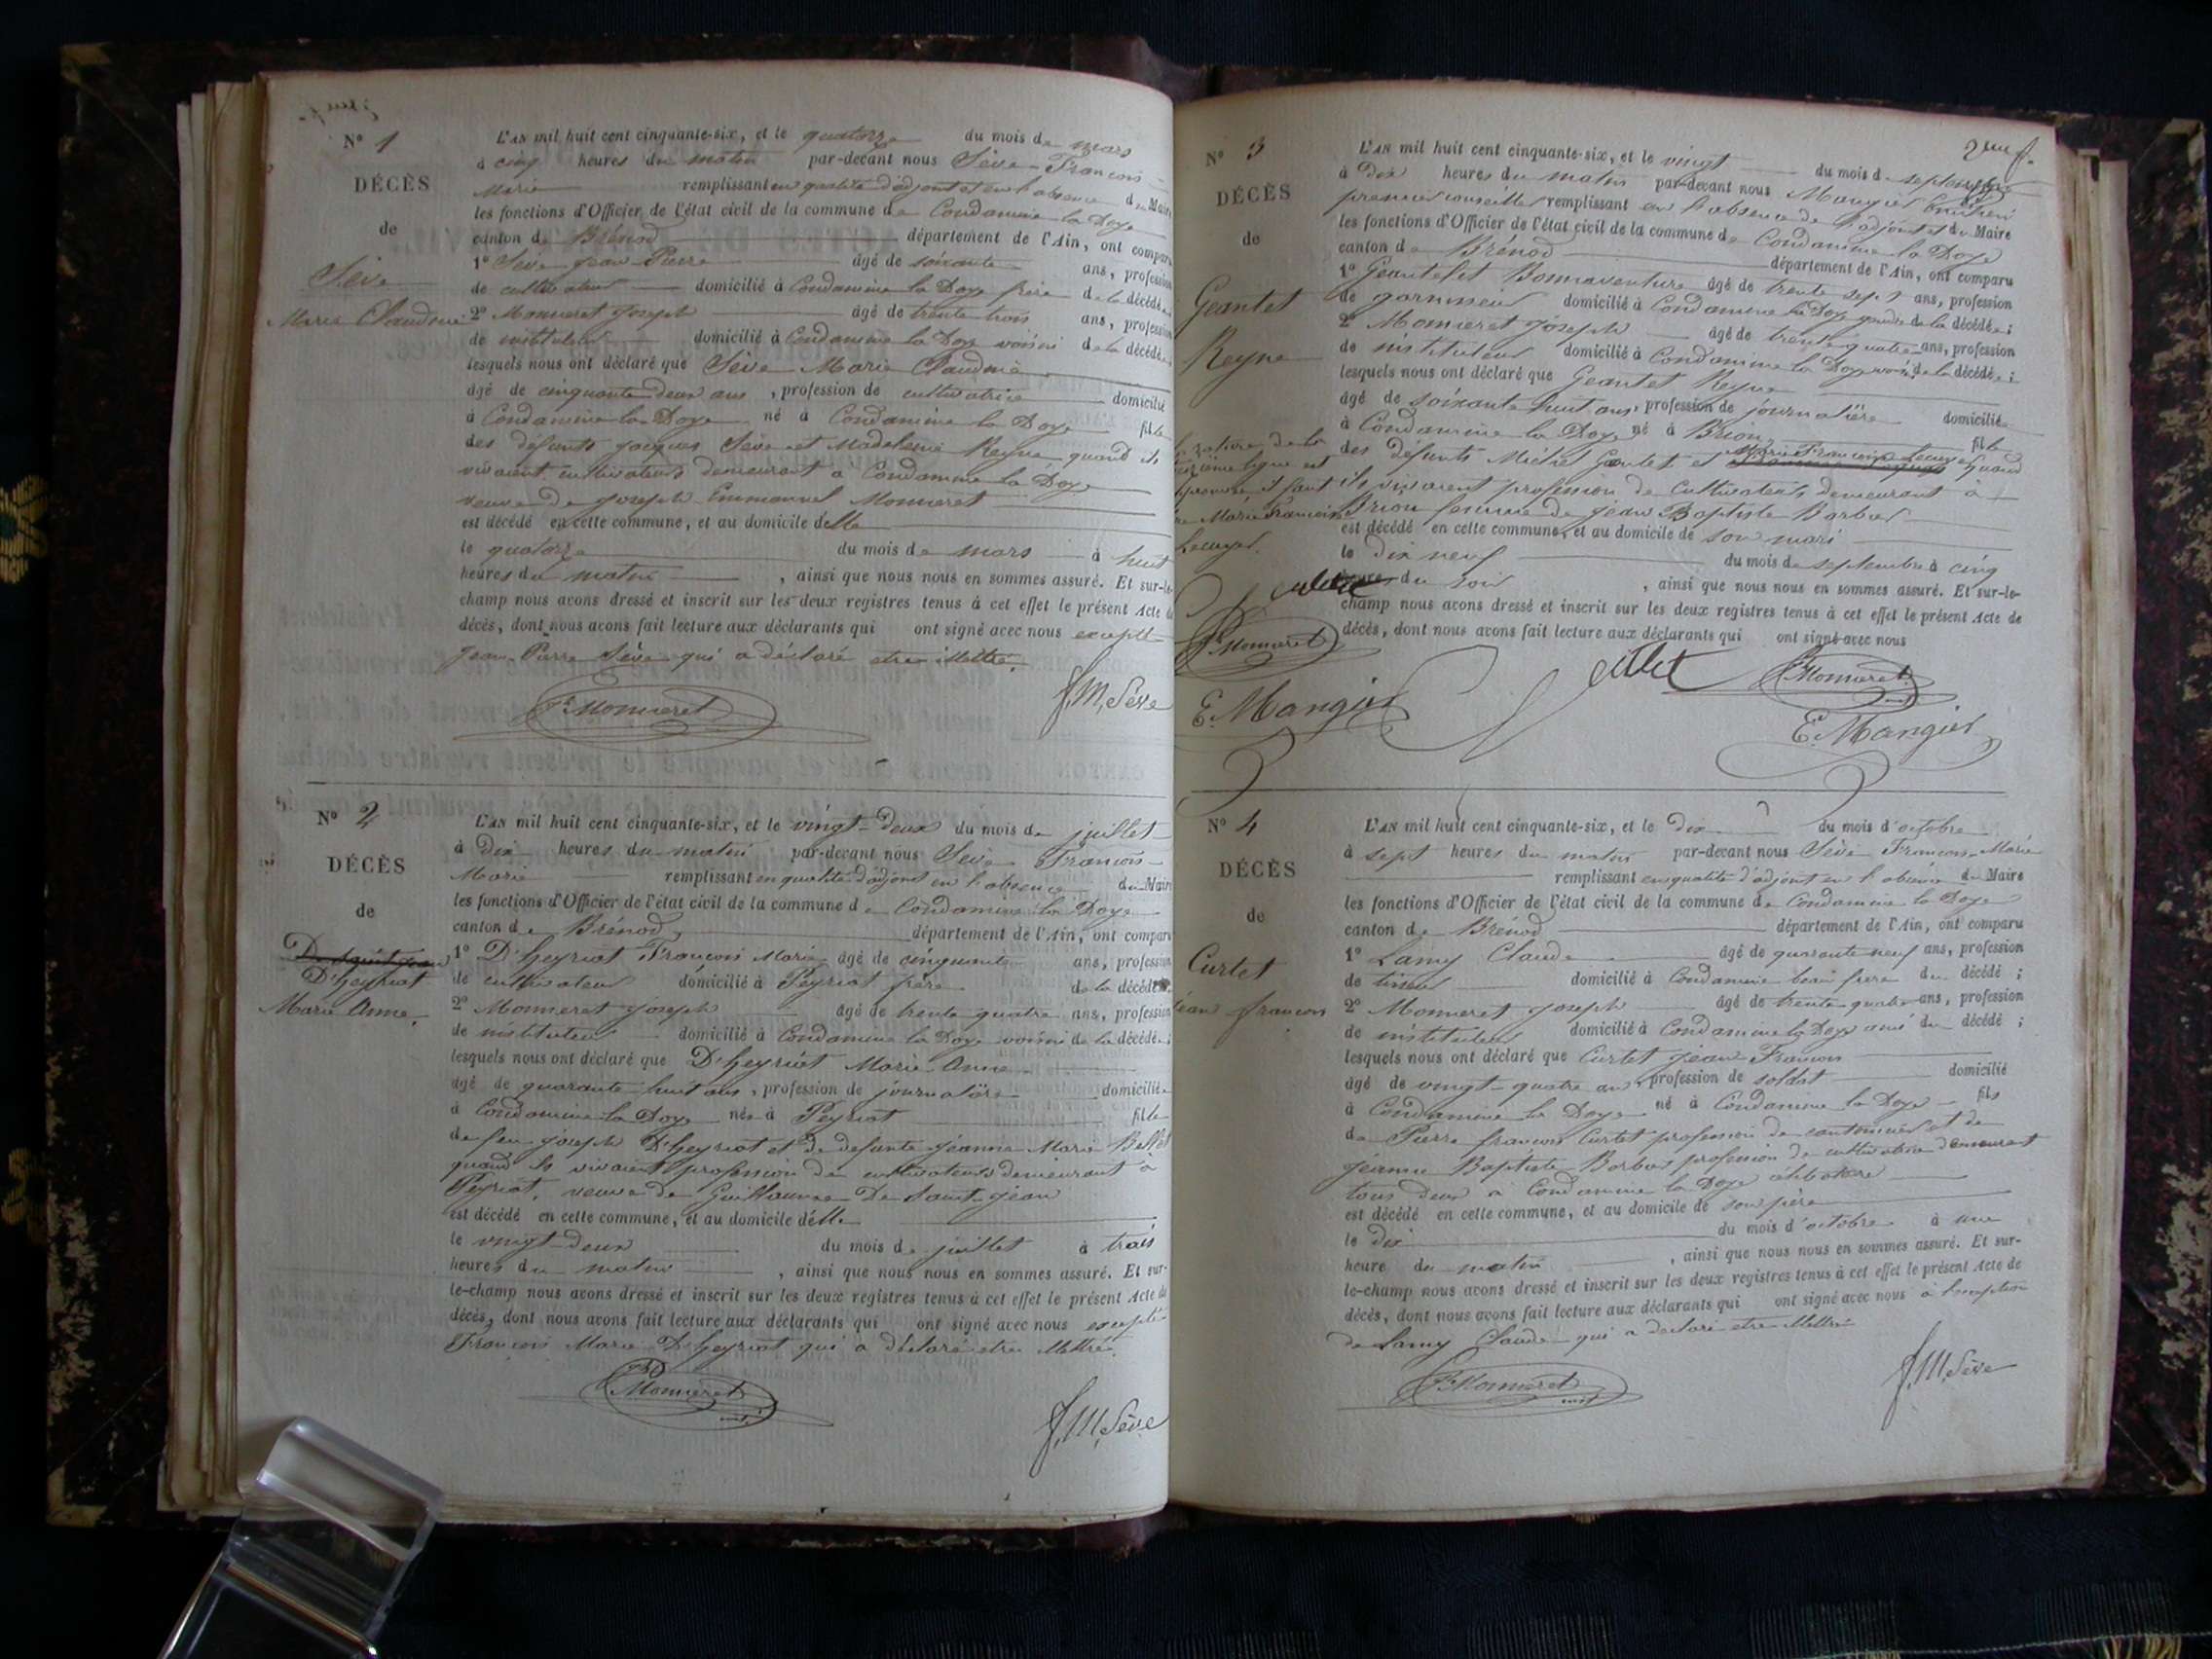 N° 1
DÉCÈS
de
Sève
Marie Claudine
L'AN mil huit cent cinquante-six, et le quatorze du mois de mars
à cinq heures du matin par-devant nous Sève François
Marie remplissant en qualité d'adjoint et en l'absence du Maire
les fonctions d'Officier de l'état civil de la commune de Condamine la Doye
canton de Brénod département de l'Ain, ont comparu
1° Sève Jean Pierre âgé de soixante ans, profession
de cultivateur domicilié à Condamine la Doye frère de la décédée
2° Monneret Joseph âgé de trente trois ans, profession
de instituteur domicilié à Condamine la Doye voisin de la décédée
lesquels nous ont déclaré que Sève Marie Claudine
âgé de cinquante deux ans, profession de cultivatrice domicilié
à Condamine la Doye né à Condamine la Doye fille
des défunts Jacques Sève et Madeleine Reyne quand ils
vivaient cultivateurs demeurant à Condamine la Doye
veuve de Joseph Emmanuel Monneret
est décédé en cette commune, et au domicile d'elle
le quatorze du mois de mars à huit
heures du matin, ainsi que nous nous en sommes assuré. Et sur-le-
champ nous avons dressé et inscrit sur les deux registres tenus à cet effet le présent Acte de
décès, dont nous avons fait lecture aux déclarants qui ont signé avec nous excepté
Jean-Pierre Sève qui a déclaré etre illettré.
Monneret
f. M. Sève
N° 2
DÉCÈS
de
D'heyriat
Marie Anne
L'AN mil huit cent cinquante-six, et le vingt-deux du mois de juillet
à Dix heures du matin par-devant nous Sève François
Marie remplissant en qualité d'adjoint en l'absence du Maire
les fonctions d'Officier de l'état civil de la commune de Condamine la Doye
canton de Brénod département de l'Ain, ont comparu
1° D'heyriat François Marie âgé de cinquante ans, profession
de cultivateur domicilié à Peyriat frère de la décédée
2° Monneret Joseph âgé de trente quatre ans, profession
de instituteur domicilié à Condamine la Doye voisin de la décédée;
lesquels nous ont déclaré que D'heyriat Marie Anne
âgé de quarante huit ans, profession de journalière domiciliée
à Condamine la Doye née à Peyriat fille
de feu Joseph D'heyriat et de defunte Jeanne Marie
quand ils vivaient profession de cultivateurs demeurant à
Peyriat, veuve de Guillaume De Saint-Jean
est décédé en cette commune, et au domicile d'elle
le vingt-deux du mois de juillet à trois
heures du matin, ainsi que nous nous en sommes assuré. Et sur-
le-champ nous avons dressé et inscrit sur les deux registres tenus à cet effet le présent Acte de
décès, dont nous avons fait lecture aux déclarants qui ont signé avec nous excepté
François Marie D'heyriat qui a déclaré etre illettré.
Monneret
f. M. Sève
2me f.
N° 3
DÉCÈS
de
Geantet
Reyne
L'AN mil huit cent cinquante-six, et le vingt du mois de septembre
à Dix heures du matin par-devant nous Mangier
premier conseiller remplissant en l'absence de l'adjoint et du Maire
les fonctions d'Officier de l'état civil de la commune de Condamine la Doye
canton de Brénod département de l'Ain, ont comparu
1° Bonnaventure âgé de trente sept ans, profession
de domicilié à Condamine la Doye gendre de la décédée;
2° Monneret Joseph âgé de trente quatre ans, profession
de instituteur domicilié à Condamine la Doye voisin de la décédée;
lesquels nous ont déclaré que Geantet Reyne
âgé de soixante huit ans, profession de journalière domiciliée
à Condamine la Doye né à Brion fille
des défunts Michel Geantet et Marie Françoise quand
ils vivaient profession de cultivateurs demeurant à
Brion femme de Jean Baptiste Barbier
est décédé en cette commune, et au domicile de son mari
le dix neuf du mois de septembre à cinq
heures du soir, ainsi que nous nous en sommes assuré. Et sur-le-
champ nous avons dressé et inscrit sur les deux registres tenus à cet effet le présent Acte de
décès, dont nous avons fait lecture aux déclarants qui ont signé avec nous
Monneret
E. Mangier
Monneret
E. Mangier
N° 4
DÉCÈS
de
Curtet
Jean françois
L'AN mil huit cent cinquante-six, et le Dix du mois d'octobre
à sept heures du matin par-devant nous Sève François-Marie
remplissant en qualité d'adjoint en l'absence du Maire
les fonctions d'Officier de l'état civil de la commune de Condamine la Doye
canton de Brénod département de l'Ain, ont comparu
1° Lamy Claude âgé de quarante neuf ans, profession
de domicilié à Condamine beau frère du décédé;
2° Monneret Joseph âgé de trente quatre ans, profession
de instituteur domicilié à Condamine la Doye ami du décédé;
lesquels nous ont déclaré que Curtet Jean François
âgé de vingt-quatre ans, profession de soldat domicilié
à Condamine la Doye né à Condamine la Doye fils
de Pierre françois Curtet profession de cantonnier et de
Jeanne Baptiste Barbier profession de cultivatrice demeurant
tous deux à Condamine la Doye célibataire
est décédé en cette commune, et au domicile de son père
le dix du mois d'octobre à une
heure du matin, ainsi que nous nous en sommes assuré. Et sur-
le-champ nous avons dressé et inscrit sur les deux registres tenus à cet effet le présent Acte de
décès, dont nous avons fait lecture aux déclarants qui ont signé avec nous à l'exception
de Lamy Claude qui a déclaré etre illettré
Monneret
f. M. Sève